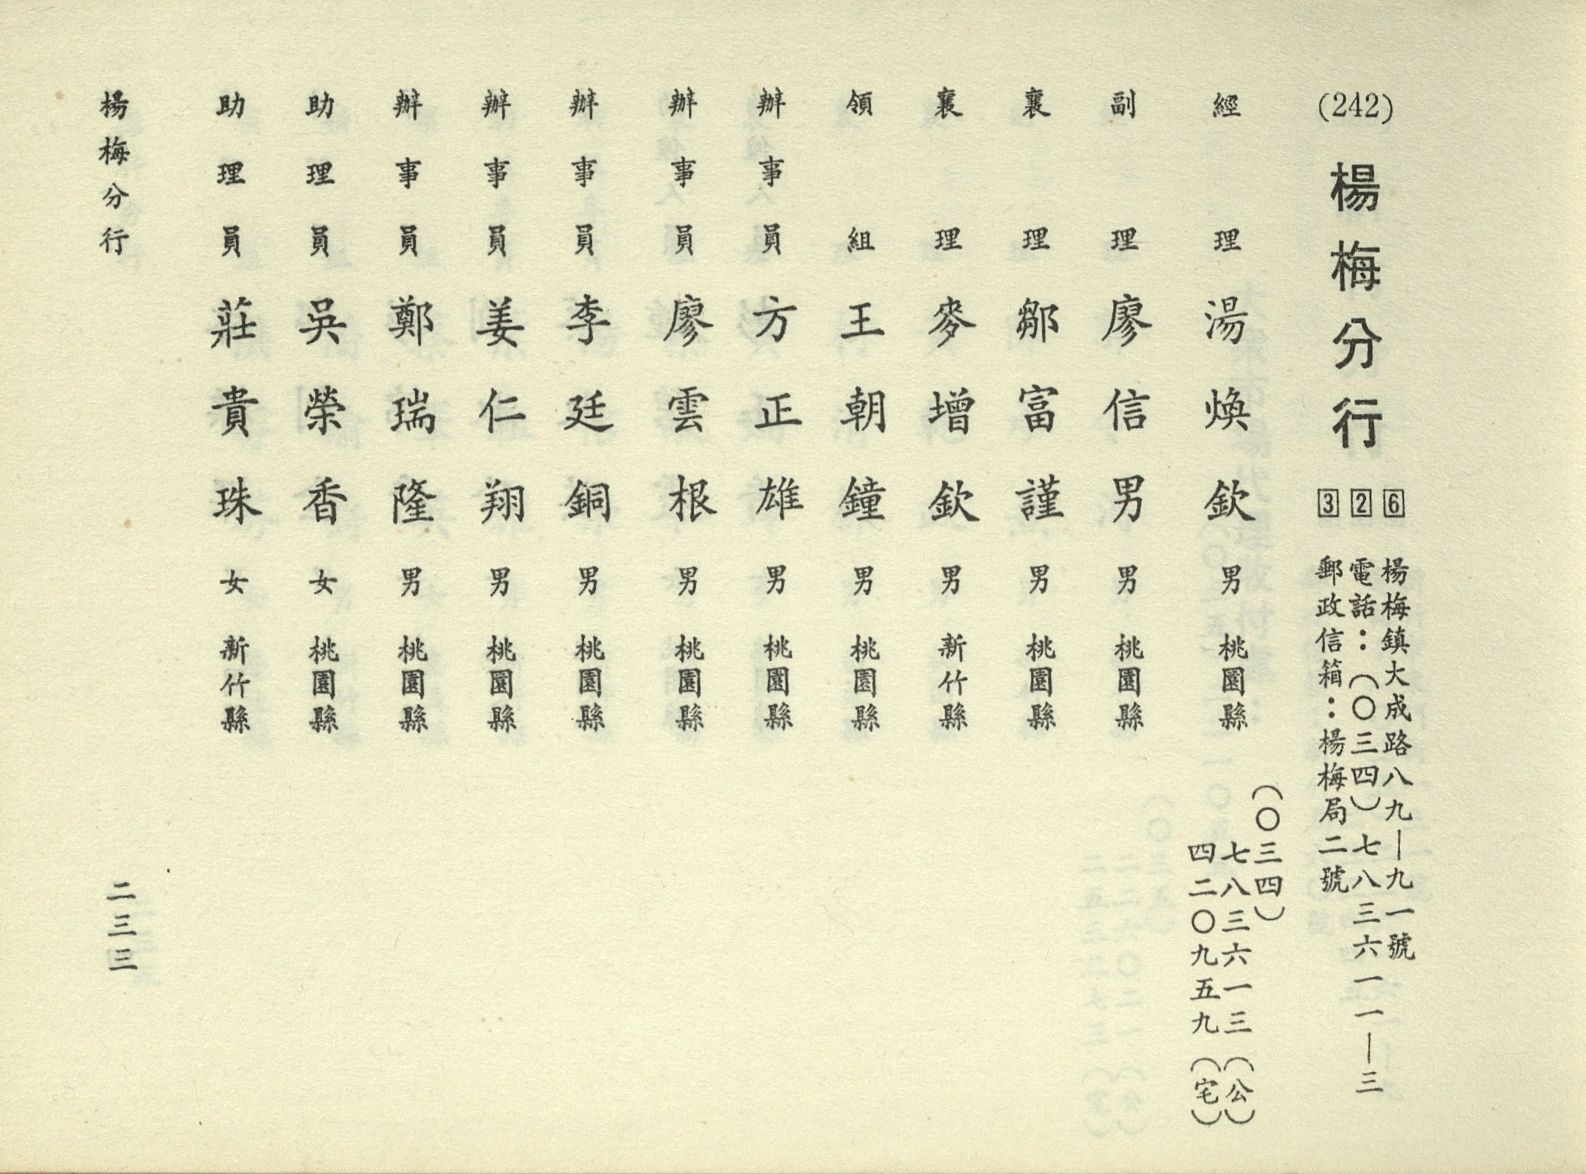 (242) 楊梅分行
6 楊梅鎮大成路八九—九一號
2 電話：(〇三四)七八三六一一—三
3 郵政信箱：楊梅局二號
(〇三四)
七八三六一三(公)
四二〇九五九(宅)
經理 湯煥欽 男 桃園縣
副理 廖信男 男 桃園縣
襄理 鄒富謹 男 桃園縣
襄理 麥增欽 男 新竹縣
領組 王朝鐘 男 桃園縣
辦事員 方正雄 男 桃園縣
辦事員 廖雲根 男 桃園縣
辦事員 李廷銅 男 桃園縣
辦事員 姜仁翔 男 桃園縣
辦事員 鄭瑞隆 男 桃園縣
助理員 吳榮香 女 桃園縣
助理員 莊貴珠 女 新竹縣
楊梅分行
二三三